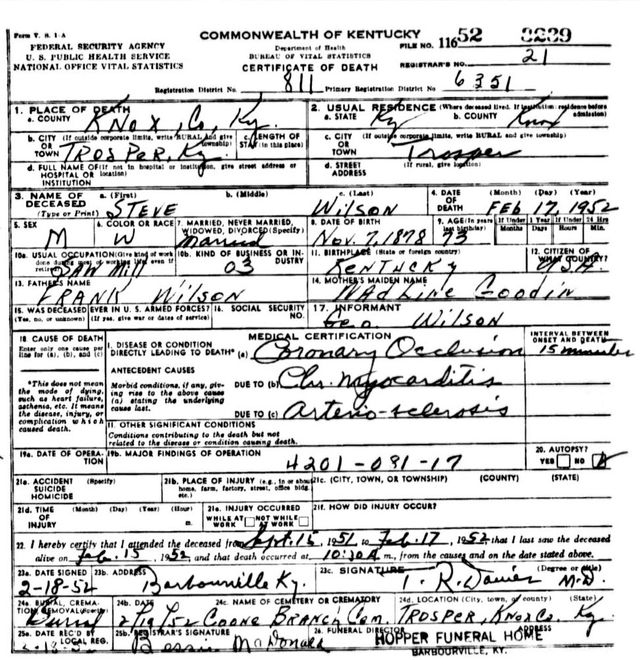 Form V. S. 1-A
COMMONWEALTH OF KENTUCKY
FEDERAL SECURITY AGENCY
U. S. PUBLIC HEALTH SERVICE
NATIONAL OFFICE VITAL STATISTICS
Department of Health
BUREAU OF VITAL STATISTICS
CERTIFICATE OF DEATH
FILE NO. 116 52
REGISTRAR'S NO. 21
Registration District No. 811 Primary Registration District No. 6351
1. PLACE OF DEATH
a. COUNTY Knox, Co, Ky.
2. USUAL RESIDENCE (Where deceased lived. If institution: residence before admission)
a. STATE Ky b. COUNTY Knox
b. CITY (If outside corporate limits, write RURAL and give township) OR TOWN TROSPER, Ky.
c. LENGTH OF STAY (in this place)
c. CITY (If outside corporate limits, write RURAL and give township) OR TOWN Trosper
d. FULL NAME OF (If not in hospital or institution, give street address or location) HOSPITAL OR INSTITUTION
d. STREET ADDRESS (If rural, give location)
3. NAME OF DECEASED (Type or Print)
a. (First) STEVE b. (Middle) c. (Last) Wilson
4. DATE OF DEATH (Month) (Day) (Year) FEB 17, 1952
5. SEX M
6. COLOR OR RACE W
7. MARRIED, NEVER MARRIED, WIDOWED, DIVORCED (Specify) Married
8. DATE OF BIRTH Nov. 7, 1878
9. AGE (In years last birthday) 73 If Under 1 Year Months Days If Under 24 Hrs Hours Min.
10a. USUAL OCCUPATION (Give kind of work done during most of working life, even if retired) SAW Mill
10b. KIND OF BUSINESS OR INDUSTRY 03
11. BIRTHPLACE (State or foreign country) KENTUCKY
12. CITIZEN OF WHAT COUNTRY? USA
13. FATHER'S NAME FRANK Wilson
14. MOTHER'S MAIDEN NAME Goodin
15. WAS DECEASED EVER IN U. S. ARMED FORCES? (Yes, no, or unknown) (If yes, give war or dates of service)
16. SOCIAL SECURITY NO.
17. INFORMANT Geo Wilson
18. CAUSE OF DEATH
Enter only one cause per line for (a), (b), and (c)
MEDICAL CERTIFICATION
INTERVAL BETWEEN ONSET AND DEATH
I. DISEASE OR CONDITION DIRECTLY LEADING TO DEATH* (a) Coronary Occlusion 15 minutes
*This does not mean the mode of dying, such as heart failure, asthenia, etc. It means the disease, injury, or complication which caused death.
ANTECEDENT CAUSES
Morbid conditions, if any, giving rise to the above cause (a) stating the underlying cause last.
DUE TO (b) Chr. Myocarditis
DUE TO (c) Arterio-sclerosis
II. OTHER SIGNIFICANT CONDITIONS
Conditions contributing to the death but not related to the disease or condition causing death.
19a. DATE OF OPERATION
19b. MAJOR FINDINGS OF OPERATION
4201-081-17
20. AUTOPSY?
YES NO
21a. ACCIDENT SUICIDE HOMICIDE (Specify)
21b. PLACE OF INJURY (e.g., in or about home, farm, factory, street, office bldg. etc.)
21c. (CITY, TOWN, OR TOWNSHIP) (COUNTY) (STATE)
21d. TIME OF INJURY (Month) (Day) (Year) (Hour) m.
21e. INJURY OCCURRED WHILE AT WORK NOT WHILE AT WORK
21f. HOW DID INJURY OCCUR?
22. I hereby certify that I attended the deceased from Sept. 16, 1951 to Feb. 17, 1952 that I last saw the deceased
alive on Feb. 15, 1952, and that death occurred at 10:30A m., from the causes and on the date stated above.
23a. DATE SIGNED 2-18-52
23b. ADDRESS Barbourville Ky.
23c. SIGNATURE (Degree or title) T. R. Davies M.D.
24a. BURIAL, CREMATION, REMOVAL (Specify) Burial
24b. DATE 2/19/52
24c. NAME OF CEMETERY OR CREMATORY COONE BRANCH Cem.
24d. LOCATION (City, town, or county) (State) TROSPER, Knox Co. Ky.
25a. DATE REC'D BY LOCAL REG.
25b. REGISTRAR'S SIGNATURE McDonald
26. FUNERAL DIRECTOR ADDRESS
HOPPER FUNERAL HOME
BARBOURVILLE, KY.